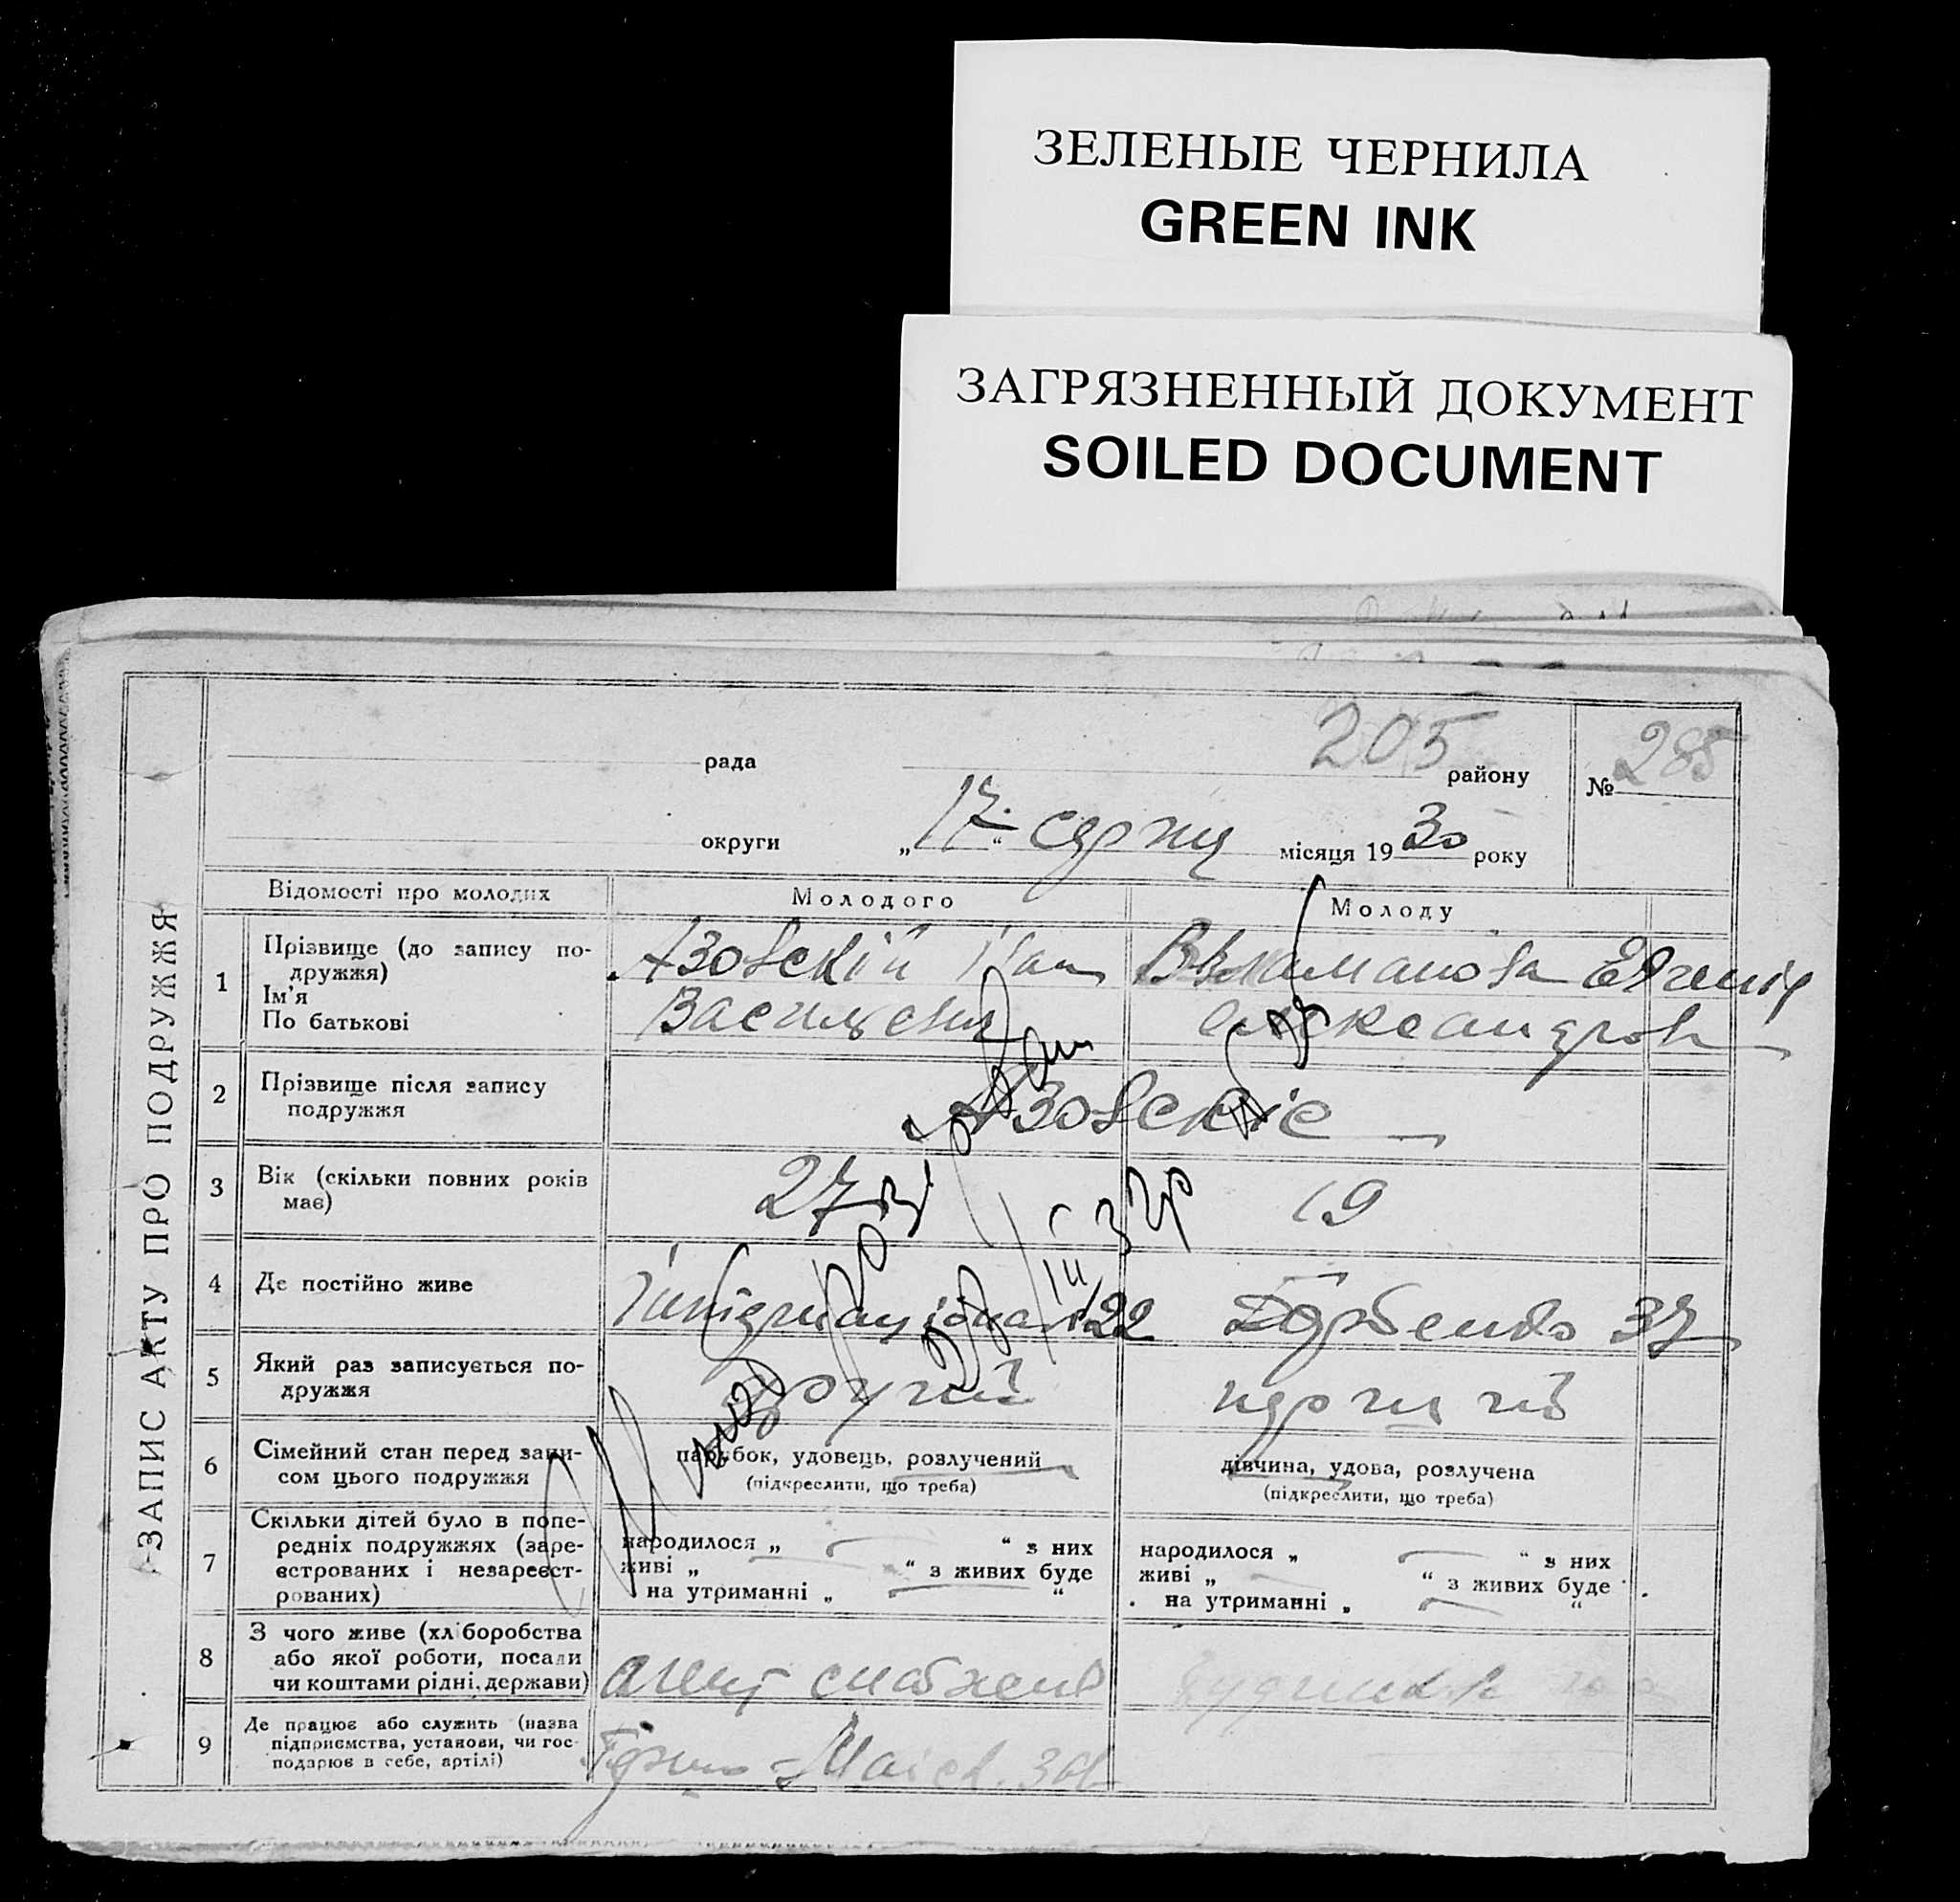 ЗЕЛЕНЫЕ ЧЕРНИЛА
GREEN INK
ЗАГРЯЗНЕННЫЙ ДОКУМЕНТ
SOILED DOCUMENT
ЗАПИС АКТУ ПРО ПОДРУЖЖЯ
205
рада району № 285
округи „17“ серпня місяця 1930 року
Відомості про молодих Молодого Молоду
1 Прізвище (до запису по-
дружжя)
Ім'я
По батькові
Азовский Іван
Васильевич
Евгенія
Александров
2 Прізвище після запису
подружжя
Азовские
3 Вік (скільки повних років
має)
27 19
4 Де постійно живе
22 37
5 Який раз записується по-
дружжя
другий перший
6 Сімейний стан перед запи-
сом цього подружжя
парубок, удовець, розлучений
(підкреслити, що треба)
дівчина, удова, розлучена
(підкреслити, що треба)
7 Скільки дітей було в попе-
редніх подружжях (заре-
єстрованих і незареєст-
рованих)
народилося „ “ з них
живі „ “ з живих буде
на утриманні „ “
народилося „ “ з них
живі „ “ з живих буде
на утриманні „ “
8 З чого живе (хліборобства
або якої роботи, посади
чи коштами рідні, держави)
агент
9 Де працює або служить (назва
підприємства, установи, чи гос-
подарює в себе, артілі)